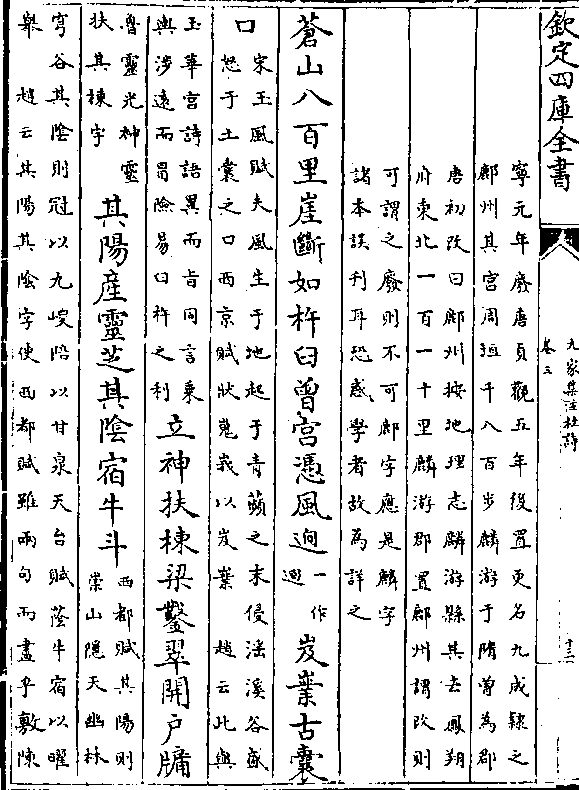 欽定四庫全書
九家集注杜詩
卷三
十三
寧元年廢唐貞觀五年復置更名九成隸之
鄜州其宮周垣千八百步麟游于隋曾為郡
唐初改曰鄜州按地理志麟游縣其去鳳翔
府東北一百一十里麟游郡置鄜州謂改則
可謂之廢則不可鄜字應是麟字
諸本誤刊耳恐惑學者故為詳之
蒼山八百里崖斷如杵臼曾宮憑風逈一作迴岌嶪古囊
口宋玉風賦夫風生于地起于青蘋之末侵滛溪谷盛
怒于土囊之口西京賦狀嵬峩以岌嶪 趙云此與
玉華宮詩語異而旨同言乘
輿涉遠而冒險易曰杵之利立神扶棟梁鑿翠開戶牖
魯靈光神靈
扶其棟宇其陽產靈芝其陰宿牛斗西都賦其陽則
崇山隱天幽林
穹谷其陰則冠以九嵕陪以甘泉天台賦蔭牛宿以曜
趙云其陽其陰字使西都賦雖兩句而盡乎敷陳